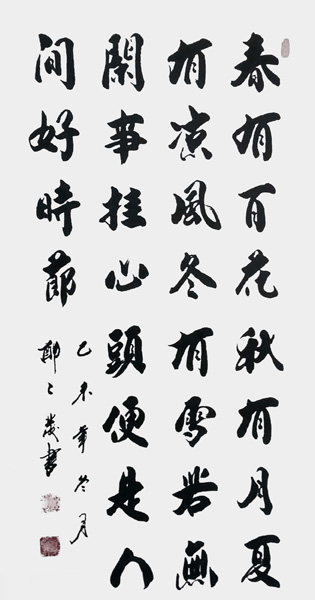 春有百花秋有月夏
有凉風冬有雪若無
閑事挂心頭便是人
間好時節
未年冬月
書